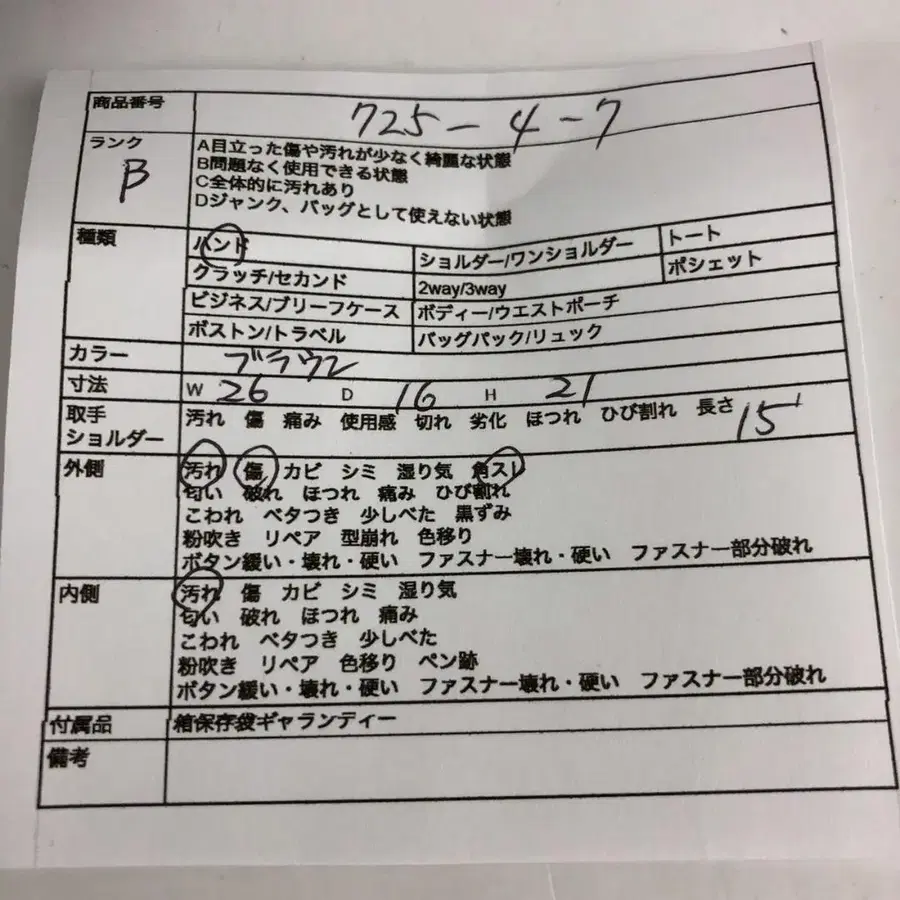 商品番号 725-4-7
ランク B
A目立った傷や汚れが少なく綺麗な状態
B問題なく使用できる状態
C全体的に汚れあり
Dジャンク、バッグとして使えない状態
種類 ハンド ショルダー/ワンショルダー トート
クラッチ/セカンド 2way/3way ポシェット
ビジネス/ブリーフケース ボディー/ウエストポーチ
ボストン/トラベル バッグパック/リュック
カラー ブラウン
寸法 W 26 D 16 H 21
取手 汚れ 傷 痛み 使用感 切れ 劣化 ほつれ ひび割れ 長さ 15
ショルダー
外側 汚れ 傷 カビ シミ 湿り気 角スレ
匂い 破れ ほつれ 痛み ひび割れ
こわれ ベタつき 少しべた 黒ずみ
粉吹き リペア 型崩れ 色移り
ボタン緩い・壊れ・硬い ファスナー壊れ・硬い ファスナー部分破れ
内側 汚れ 傷 カビ シミ 湿り気
匂い 破れ ほつれ 痛み
こわれ ベタつき 少しべた
粉吹き リペア 色移り ペン跡
ボタン緩い・壊れ・硬い ファスナー壊れ・硬い ファスナー部分破れ
付属品 箱保存袋ギャランティー
備考